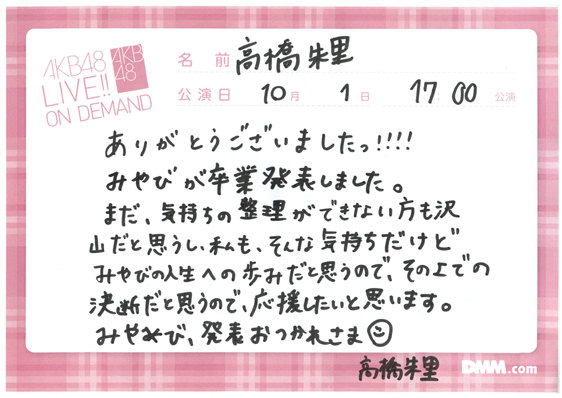 AKB48
LIVE!!
ON DEMAND
AKB
48
名前 高橋朱里
公演日 10月 1日 17:00 公演
ありがとうございましたっ!!!!
みやびが卒業発表しました。
まだ、気持ちの整理ができない方も沢
山だと思うし、私も、そんな気持ちだけど
みやびの人生への歩みだと思うので、その上での
決断だと思うので、応援したいと思います。
みやび、発表おつかれさま
高橋朱里
DMM.com